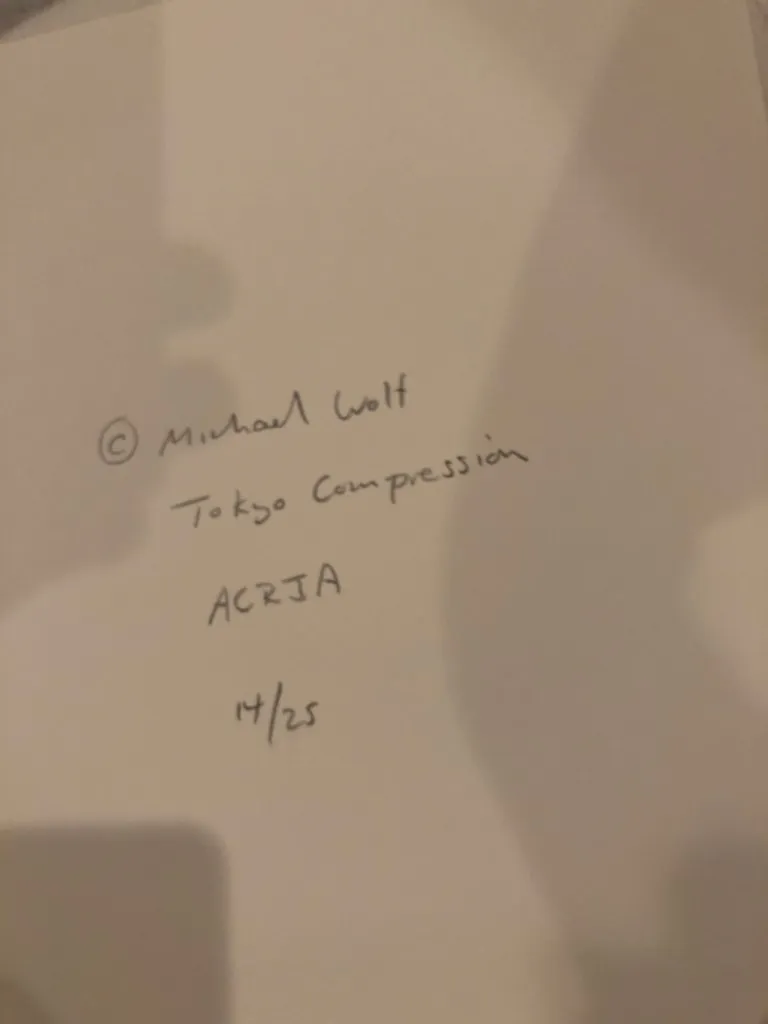 © Michael Wolf
Tokyo Compression
ACRJA
14/25